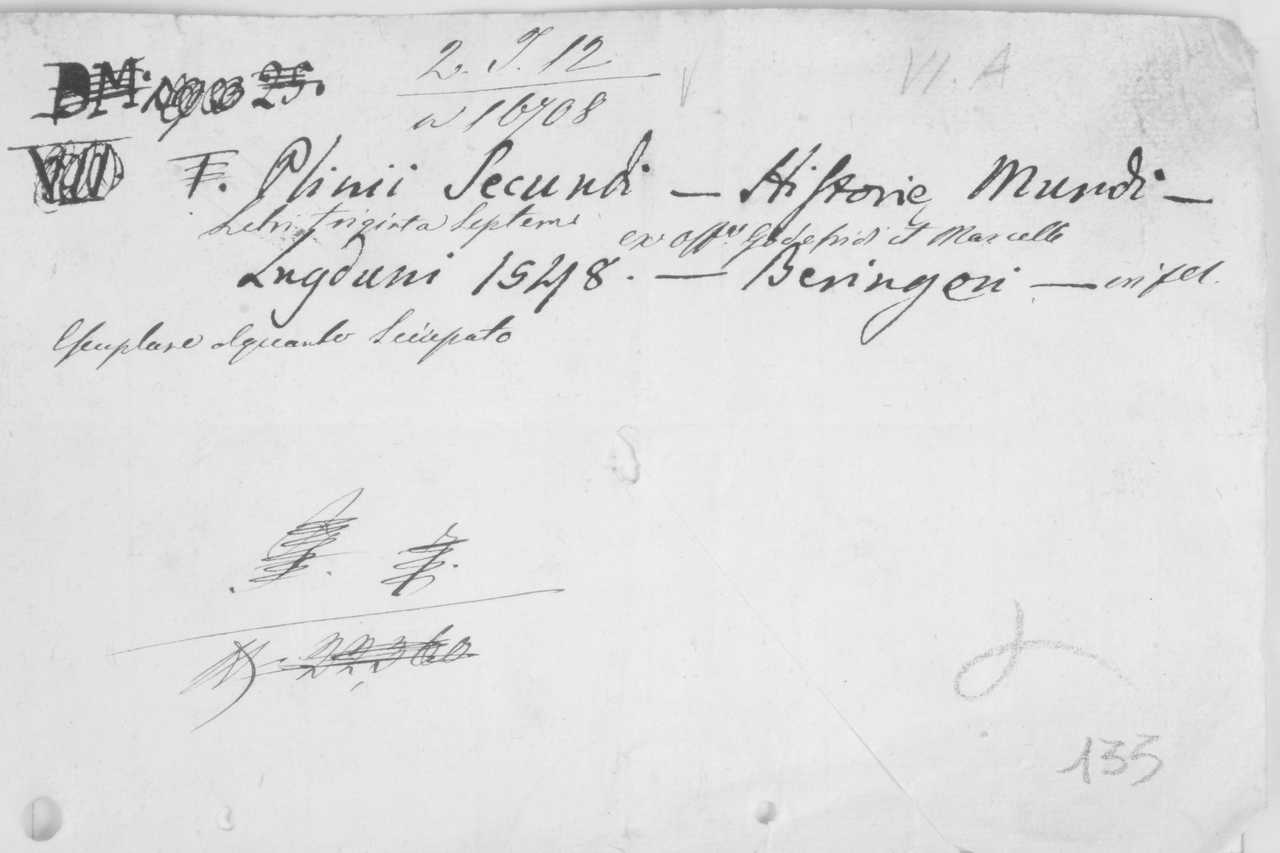 2. I. 12
VI. A
a 16708
T. Plinii Secundi — Historię Mundi —
Libri triginta Septem
ex offna Godefridi et Marcelli
Lugduni 1548. — Beringeri — in fol.
Esemplare alquanto Sciupato
22360
133